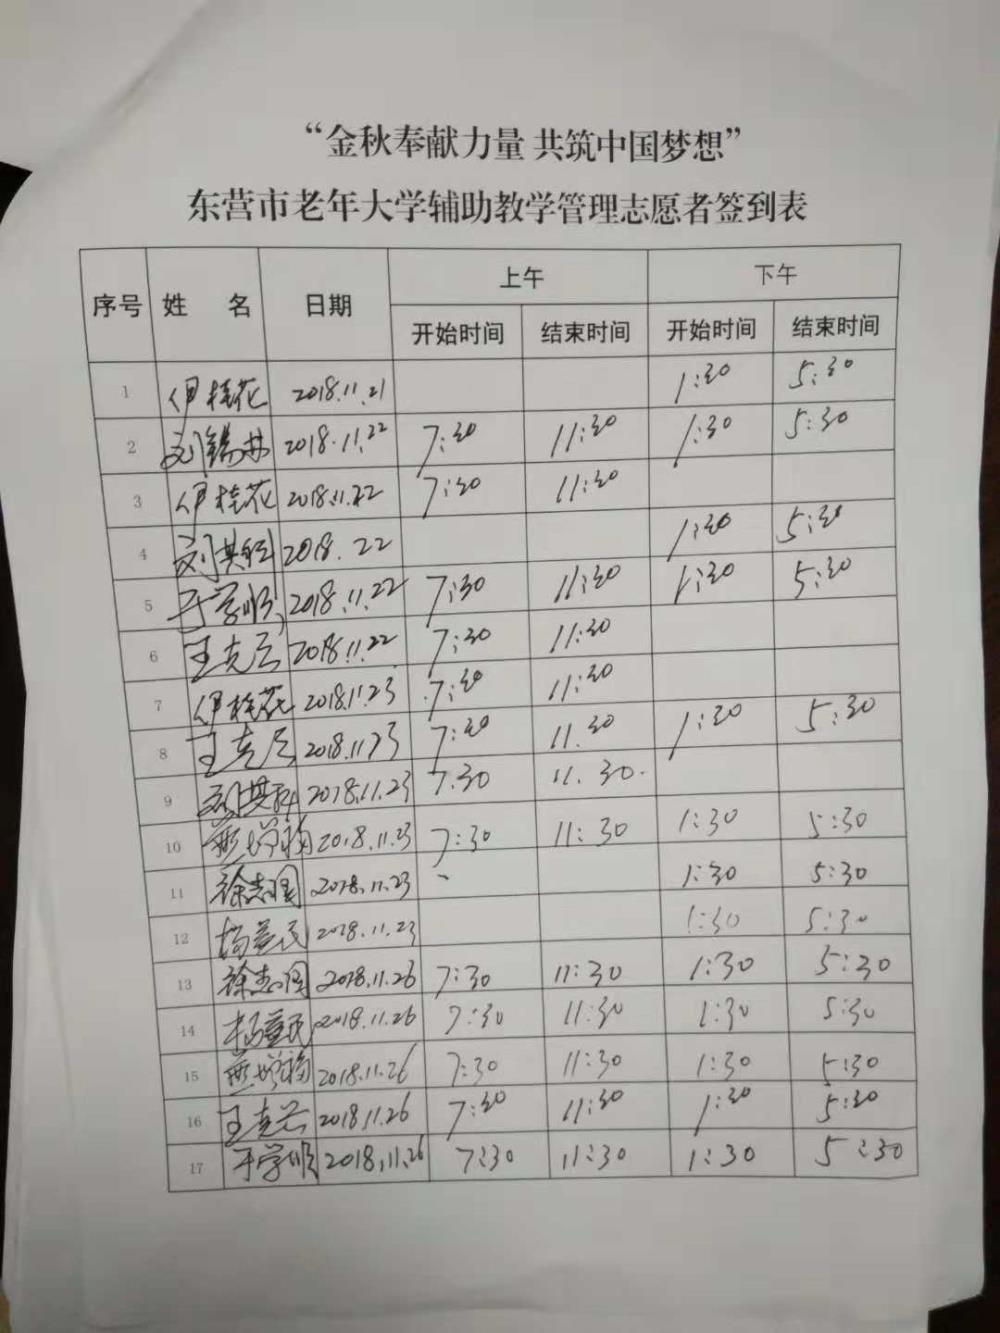 “金秋奉献力量 共筑中国梦想”
东营市老年大学辅助教学管理志愿者签到表
序号 姓 名 日期 上午 下午
开始时间 结束时间 开始时间 结束时间
1 伊桂花 2018.11.21 1:30 5:30
2 刘锡 2018.11.22 7:30 11:30 1:30 5:30
3 伊桂花 2018.11.22 7:30 11:30
4 刘其科 2018.22 1:30 5:30
5 于学顺 2018.11.22 7:30 11:30 1:30 5:30
6 王克 2018.11.22 7:30 11:30
7 伊桂花 2018.11.23 7:30 11:30
8 王克 2018.1123 7:30 11.30 1:30 5:30
9 刘其科 2018.11.23 7.30 11.30
10 2018.11.23 7:30 11:30 1:30 5:30
11 徐志国 2018.11.23 1:30 5:30
12 杨益民 2018.11.23 1:30 5:30
13 徐志国 2018.11.26 7:30 11:30 1:30 5:30
14 杨益民 2018.11.26 7:30 11:30 1:30 5:30
15 2018.11.26 7:30 11:30 1:30 5:30
16 王克 2018.11.26 7:30 11:30 1:30 5:30
17 于学顺 2018.11.26 7:30 11:30 1:30 5:30